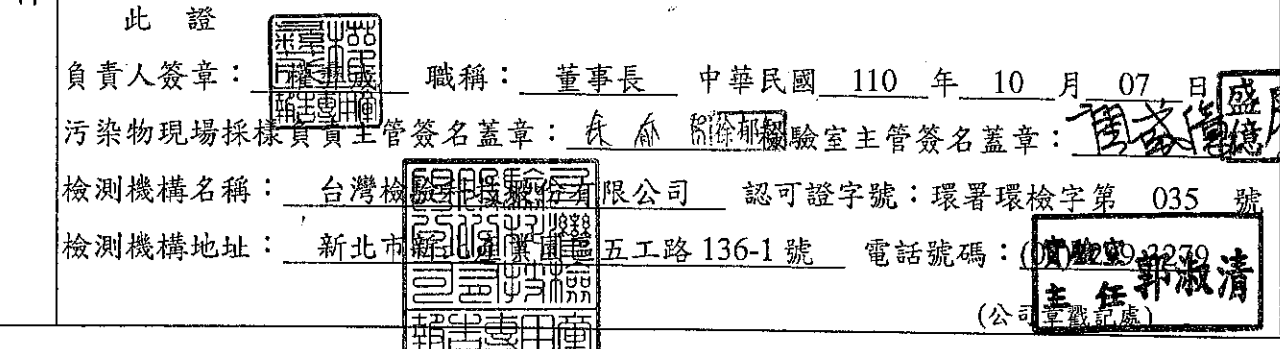 此證
負責人簽章： 職稱： 董事長 中華民國 110 年 10 月 07 日
污染物現場採樣負責主管簽名蓋章： 檢驗室主管簽名蓋章：
檢測機構名稱： 台灣檢驗科技股份有限公司 認可證字號：環署環檢字第 035 號
檢測機構地址： 新北市新北產業園區五工路 136-1 號 電話號碼：
實驗室主任 郭淑清
(公司章戳記處)